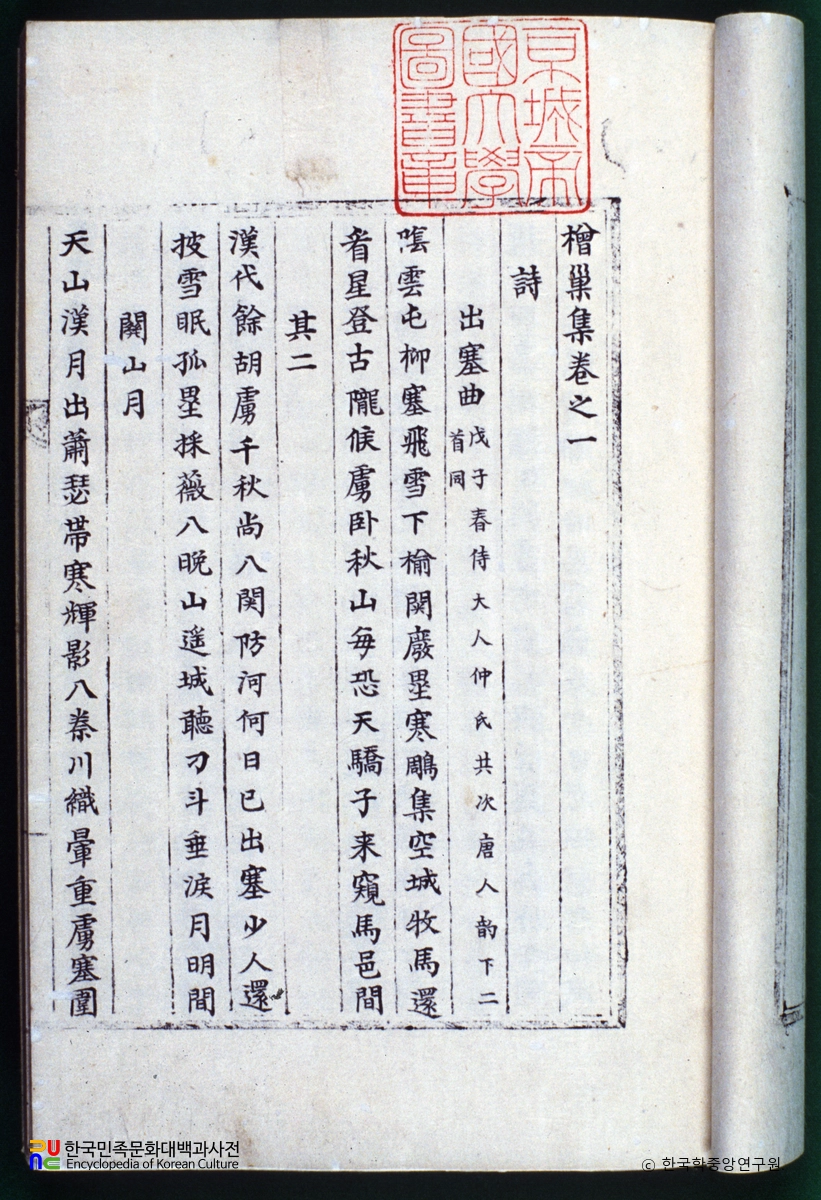 京城帝
國大學
圖書章
檜巢集卷之一
詩
出塞曲 戊子春侍大人仲氏共次唐人韵下二
首同
陰雲屯柳塞飛雪下榆関廢壘寒鵰集空城牧馬還
看星登古隴候虜卧秋山每恐天驕子来窺馬邑間
其二
漢代餘胡虜千秋尚入関防河何日已出塞少人還
披雪眠孤壘採薇入晚山遥城聽刁斗垂淚月明間
関山月
天山漢月出蕭瑟帶寒輝影入秦川織暈重虜塞圍
한국민족문화대백과사전
Encyclopedia of Korean Culture
© 한국학중앙연구원